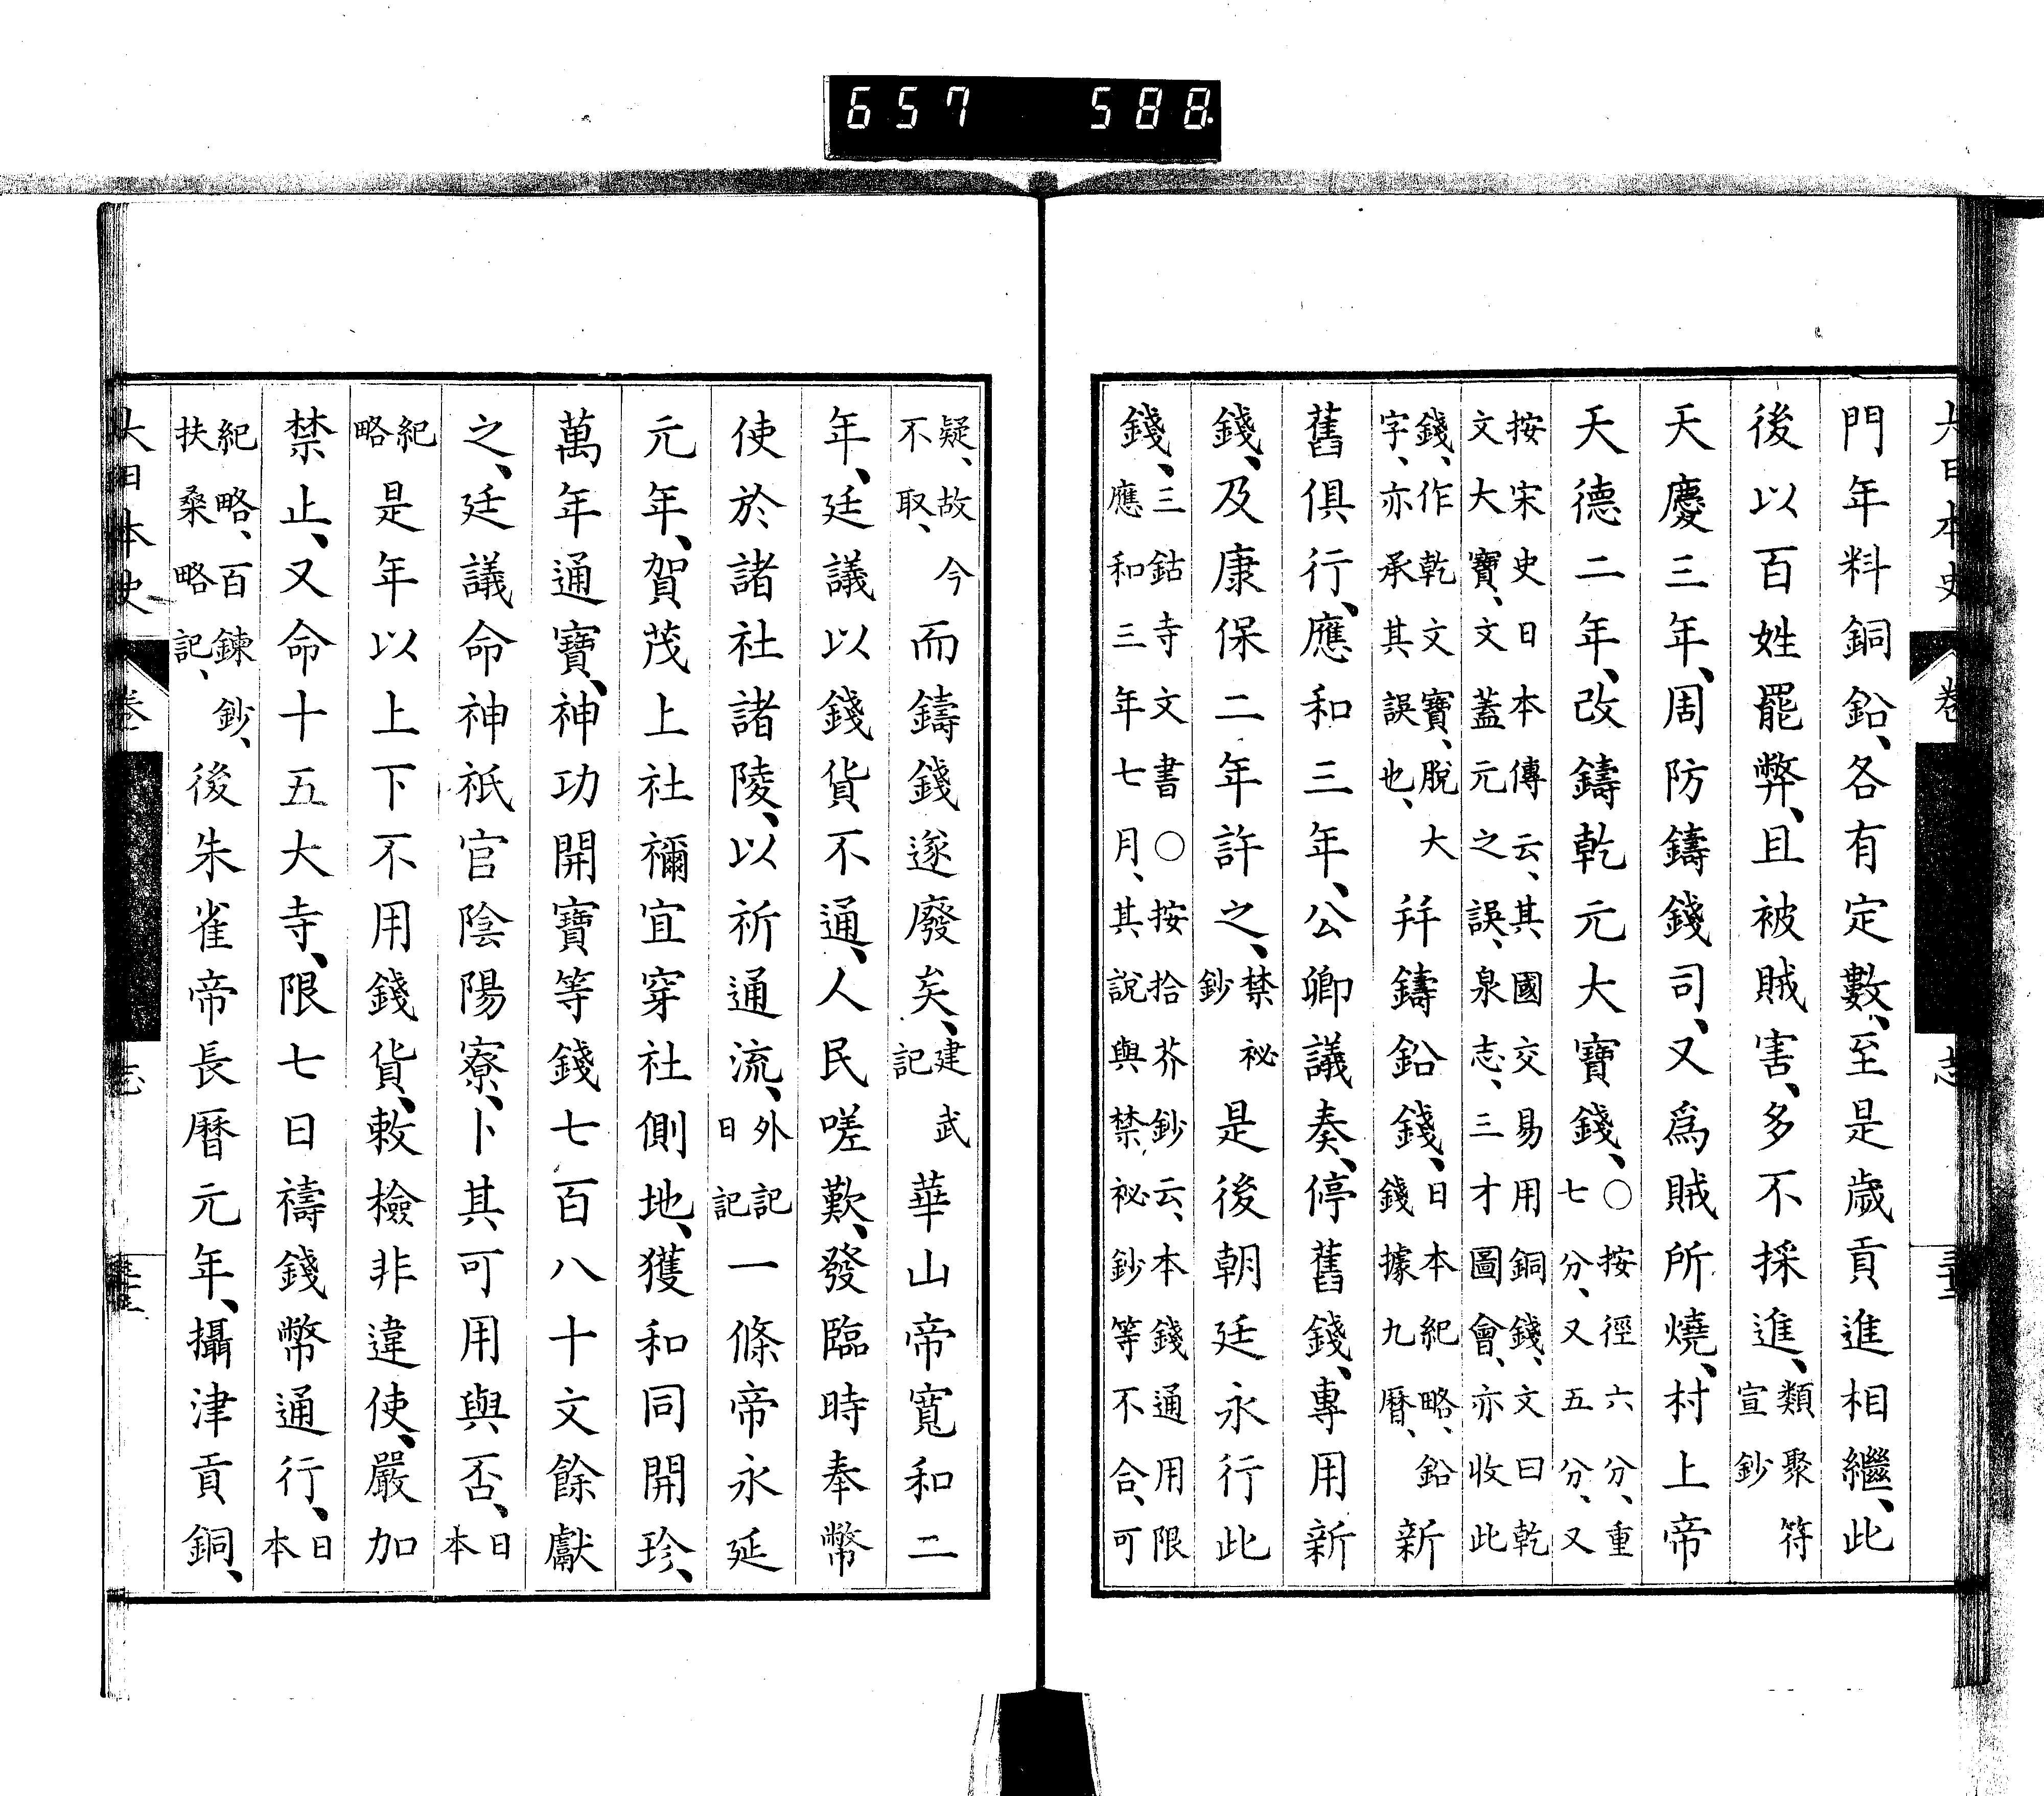 657 588
大日本史 卷 志
門年料銅鉛、各有定數、至是歲貢進相繼、此
後以百姓罷弊、且被賊害、多不採進、類聚符宣鈔
天慶三年、周防鑄錢司、又爲賊所燒、村上帝
天德二年、改鑄乾元大寶錢、○按徑六分、重七分、又五分、又
按宋史日本傳云、其國交易用銅錢、文曰乾文大寶、文蓋元之誤、泉志、三才圖會、亦收此
錢、作乾文寶、脫大字、亦承其誤也、幷鑄鉛錢、日本紀略、鉛錢據九曆、新
舊俱行、應和三年、公卿議奏、停舊錢、專用新
錢、及康保二年許之、禁祕鈔是後朝廷永行此
錢、三鈷寺文書○按拾芥鈔云、本錢通用限應和三年七月、其說與禁祕鈔等不合、可
疑、故不取、今而鑄錢遂廢矣、建武記華山帝寬和二
年、廷議以錢貨不通、人民嗟歎、發臨時奉幣
使於諸社諸陵、以祈通流、外記日記一條帝永延
元年、賀茂上社禰宜穿社側地、獲和同開珍、
萬年通寶、神功開寶等錢七百八十文餘獻
之、廷議命神祇官陰陽寮、卜其可用與否、日本
紀略是年以上下不用錢貨、敕檢非違使、嚴加
禁止、又命十五大寺、限七日禱錢幣通行、日本
紀略、百鍊鈔、扶桑略記、後朱雀帝長曆元年、攝津貢銅、
大日本史 卷 志